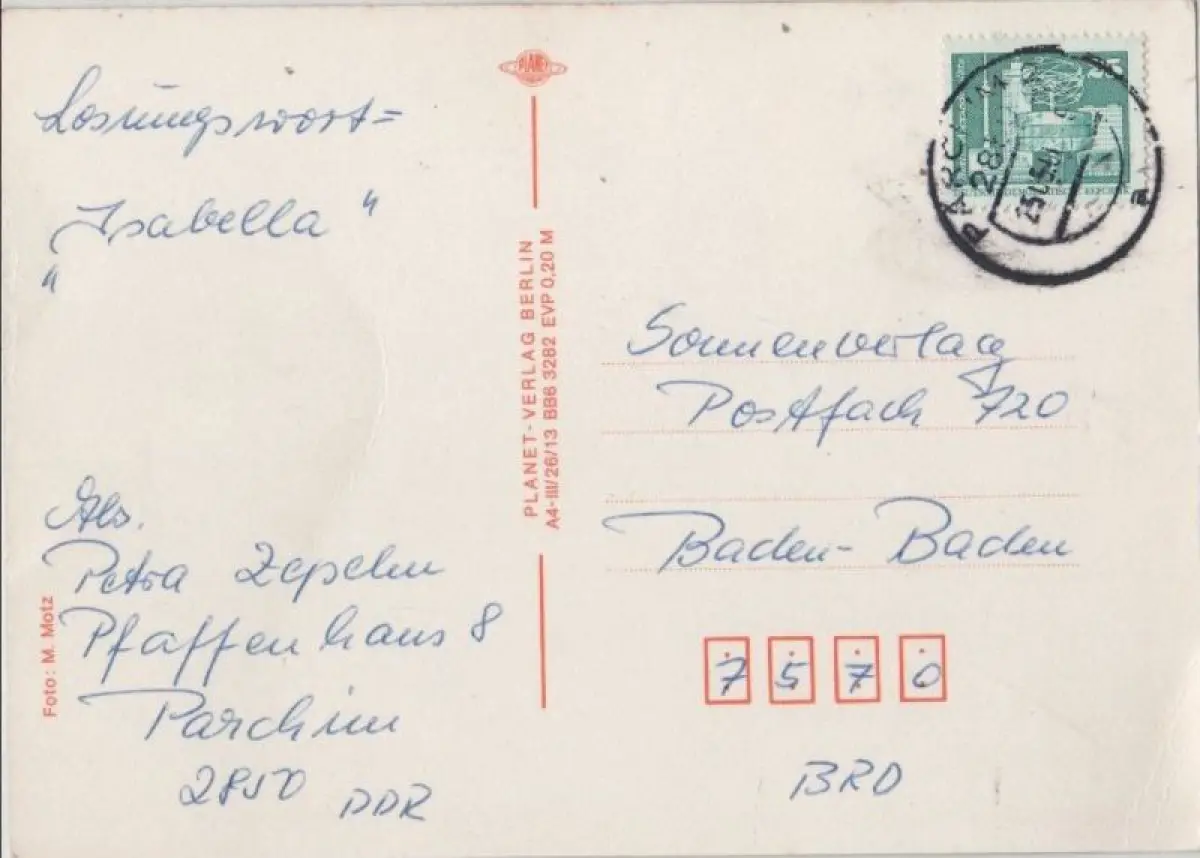 Losungswort =
„Isabella"
Abs.
Petra Zepelin
Pfaffenhaus 8
Parchim
2850 DDR
Foto: M. Motz
PLANET
PLANET-VERLAG BERLIN
A4-III/26/13 BB6 3282 EVP 0,20 M
PARCHIM
Sonnenverlag
Postfach 720
Baden-Baden
7570
BRD